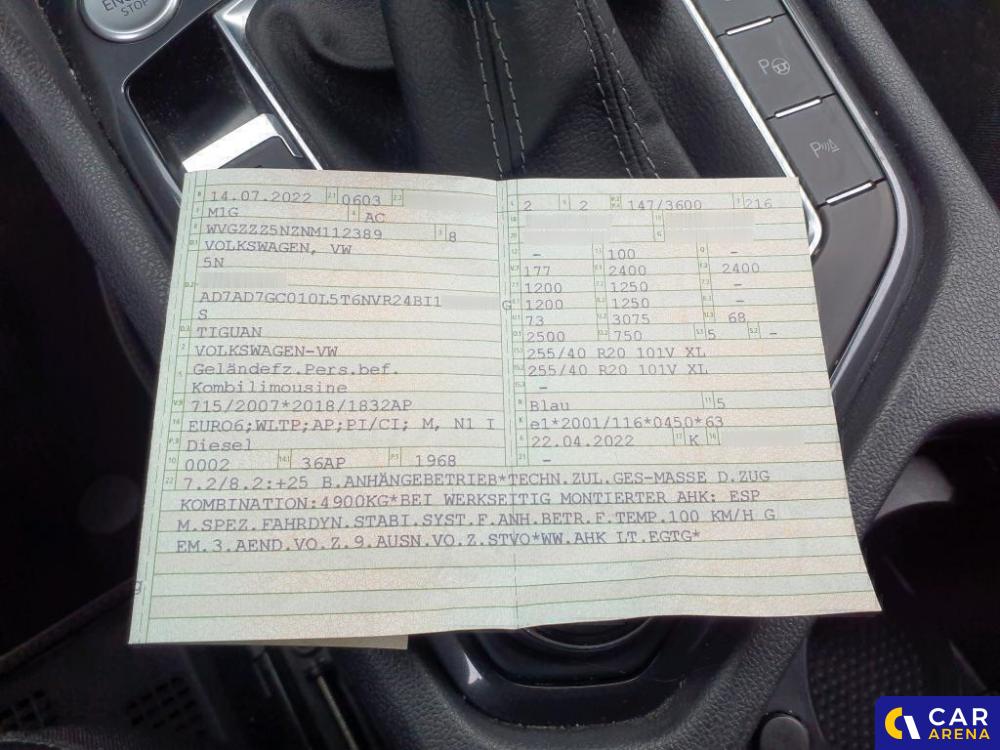 ENGINE
STOP
P
P
B 14.07.2022 2.1 0603 2.2
J M1G 4 AC
E WVGZZZ5NZNM112389 3 8
D.1 VOLKSWAGEN, VW
5N
D.2
AD7AD7GC010L5T6NVR24BI1 G
S
D.3 TIGUAN
2 VOLKSWAGEN-VW
5 Geländefz.Pers.bef.
Kombilimousine
V.9 715/2007*2018/1832AP
14 EURO6;WLTP;AP;PI/CI; M, N1 I
P.3 Diesel
10 0002 14.1 36AP P.1 1968
L 2 9 2 P.2 P.4 147/3600 T 216
18 19
20 G
12 - 13 100 Q -
V.7 177 F.1 2400 F.2 2400
7.1 1200 7.2 1250 7.3 -
8.1 1200 8.2 1250 8.3 -
U.1 73 U.2 3075 U.3 68
O.1 2500 O.2 750 S.1 5 S.2 -
15.1 255/40 R20 101V XL
15.2 255/40 R20 101V XL
15.3 -
R Blau 11 5
K e1*2001/116*0450*63
6 22.04.2022 17 K 16
21 -
22 7.2/8.2:+25 B.ANHÄNGEBETRIEB*TECHN.ZUL.GES-MASSE D.ZUG
KOMBINATION:4900KG*BEI WERKSEITIG MONTIERTER AHK: ESP
M.SPEZ.FAHRDYN.STABI.SYST.F.ANH.BETR.F.TEMP.100 KM/H G
EM.3.AEND.VO.Z.9.AUSN.VO.Z.STVO*WW.AHK LT.EGTG*
CAR
ARENA